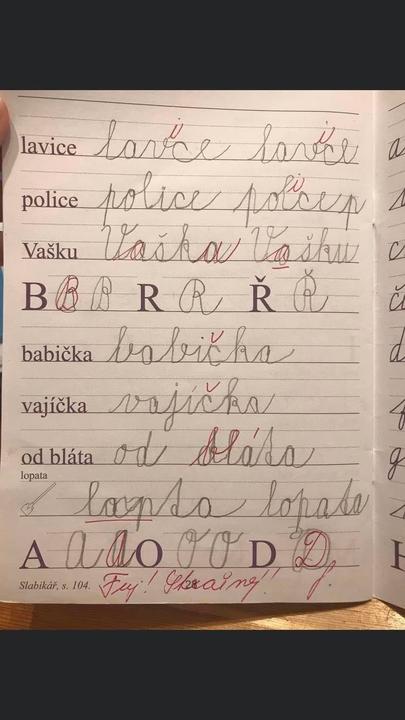 lavice lavice lavice
police police policep
Vašku Vaška Vašku
B B B R R Ř Ř
babička babička
vajíčka vajíčka
od bláta od bláta
lopata
loapta lopata
A A A O O O D D
Slabikář, s. 104. Fuj! Strašný!